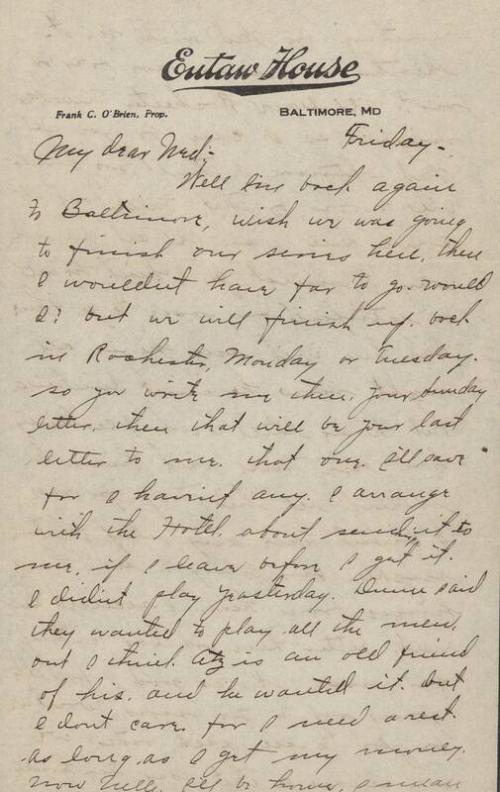 Eutaw House
Frank C. O'Brien, Prop.
BALTIMORE, MD
Friday-
My dear Ned:-
Well I'm back again
to Baltimore, wish we was going
to finish our series here, then
I wouldn't have far to go. would
I? but we will finish up. back
in Rochester, Monday or Tuesday.
so you write me there. your Sunday
letter. then that will be your last
letter to me. that one. I'll save
for I havint any. I arrange
with the Hotel. about send it to
me, if I leave before I get it.
I didint play yesterday. said
they wanted to play all the men.
out I think. Atz is an old friend
of his. and he wanted it. but
I dont care. for I need a rest.
as long as I get my money.
now I'll be home, I mean